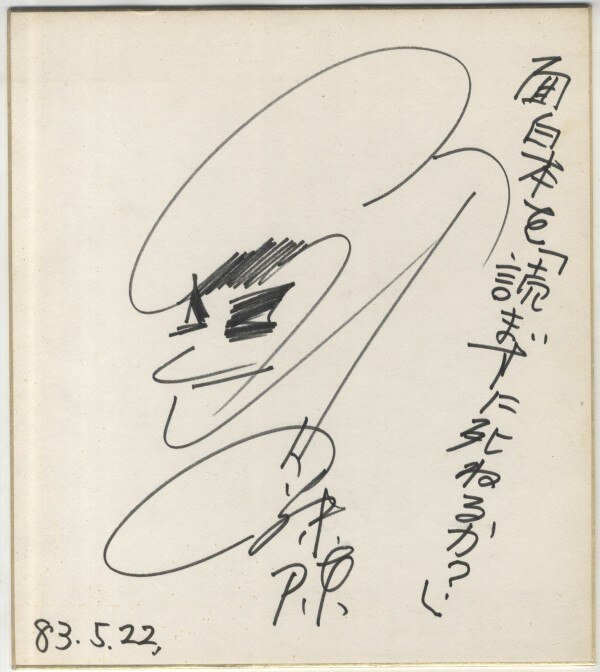 面白本を「読まずに死ねるか?」
内藤陳
83.5.22,